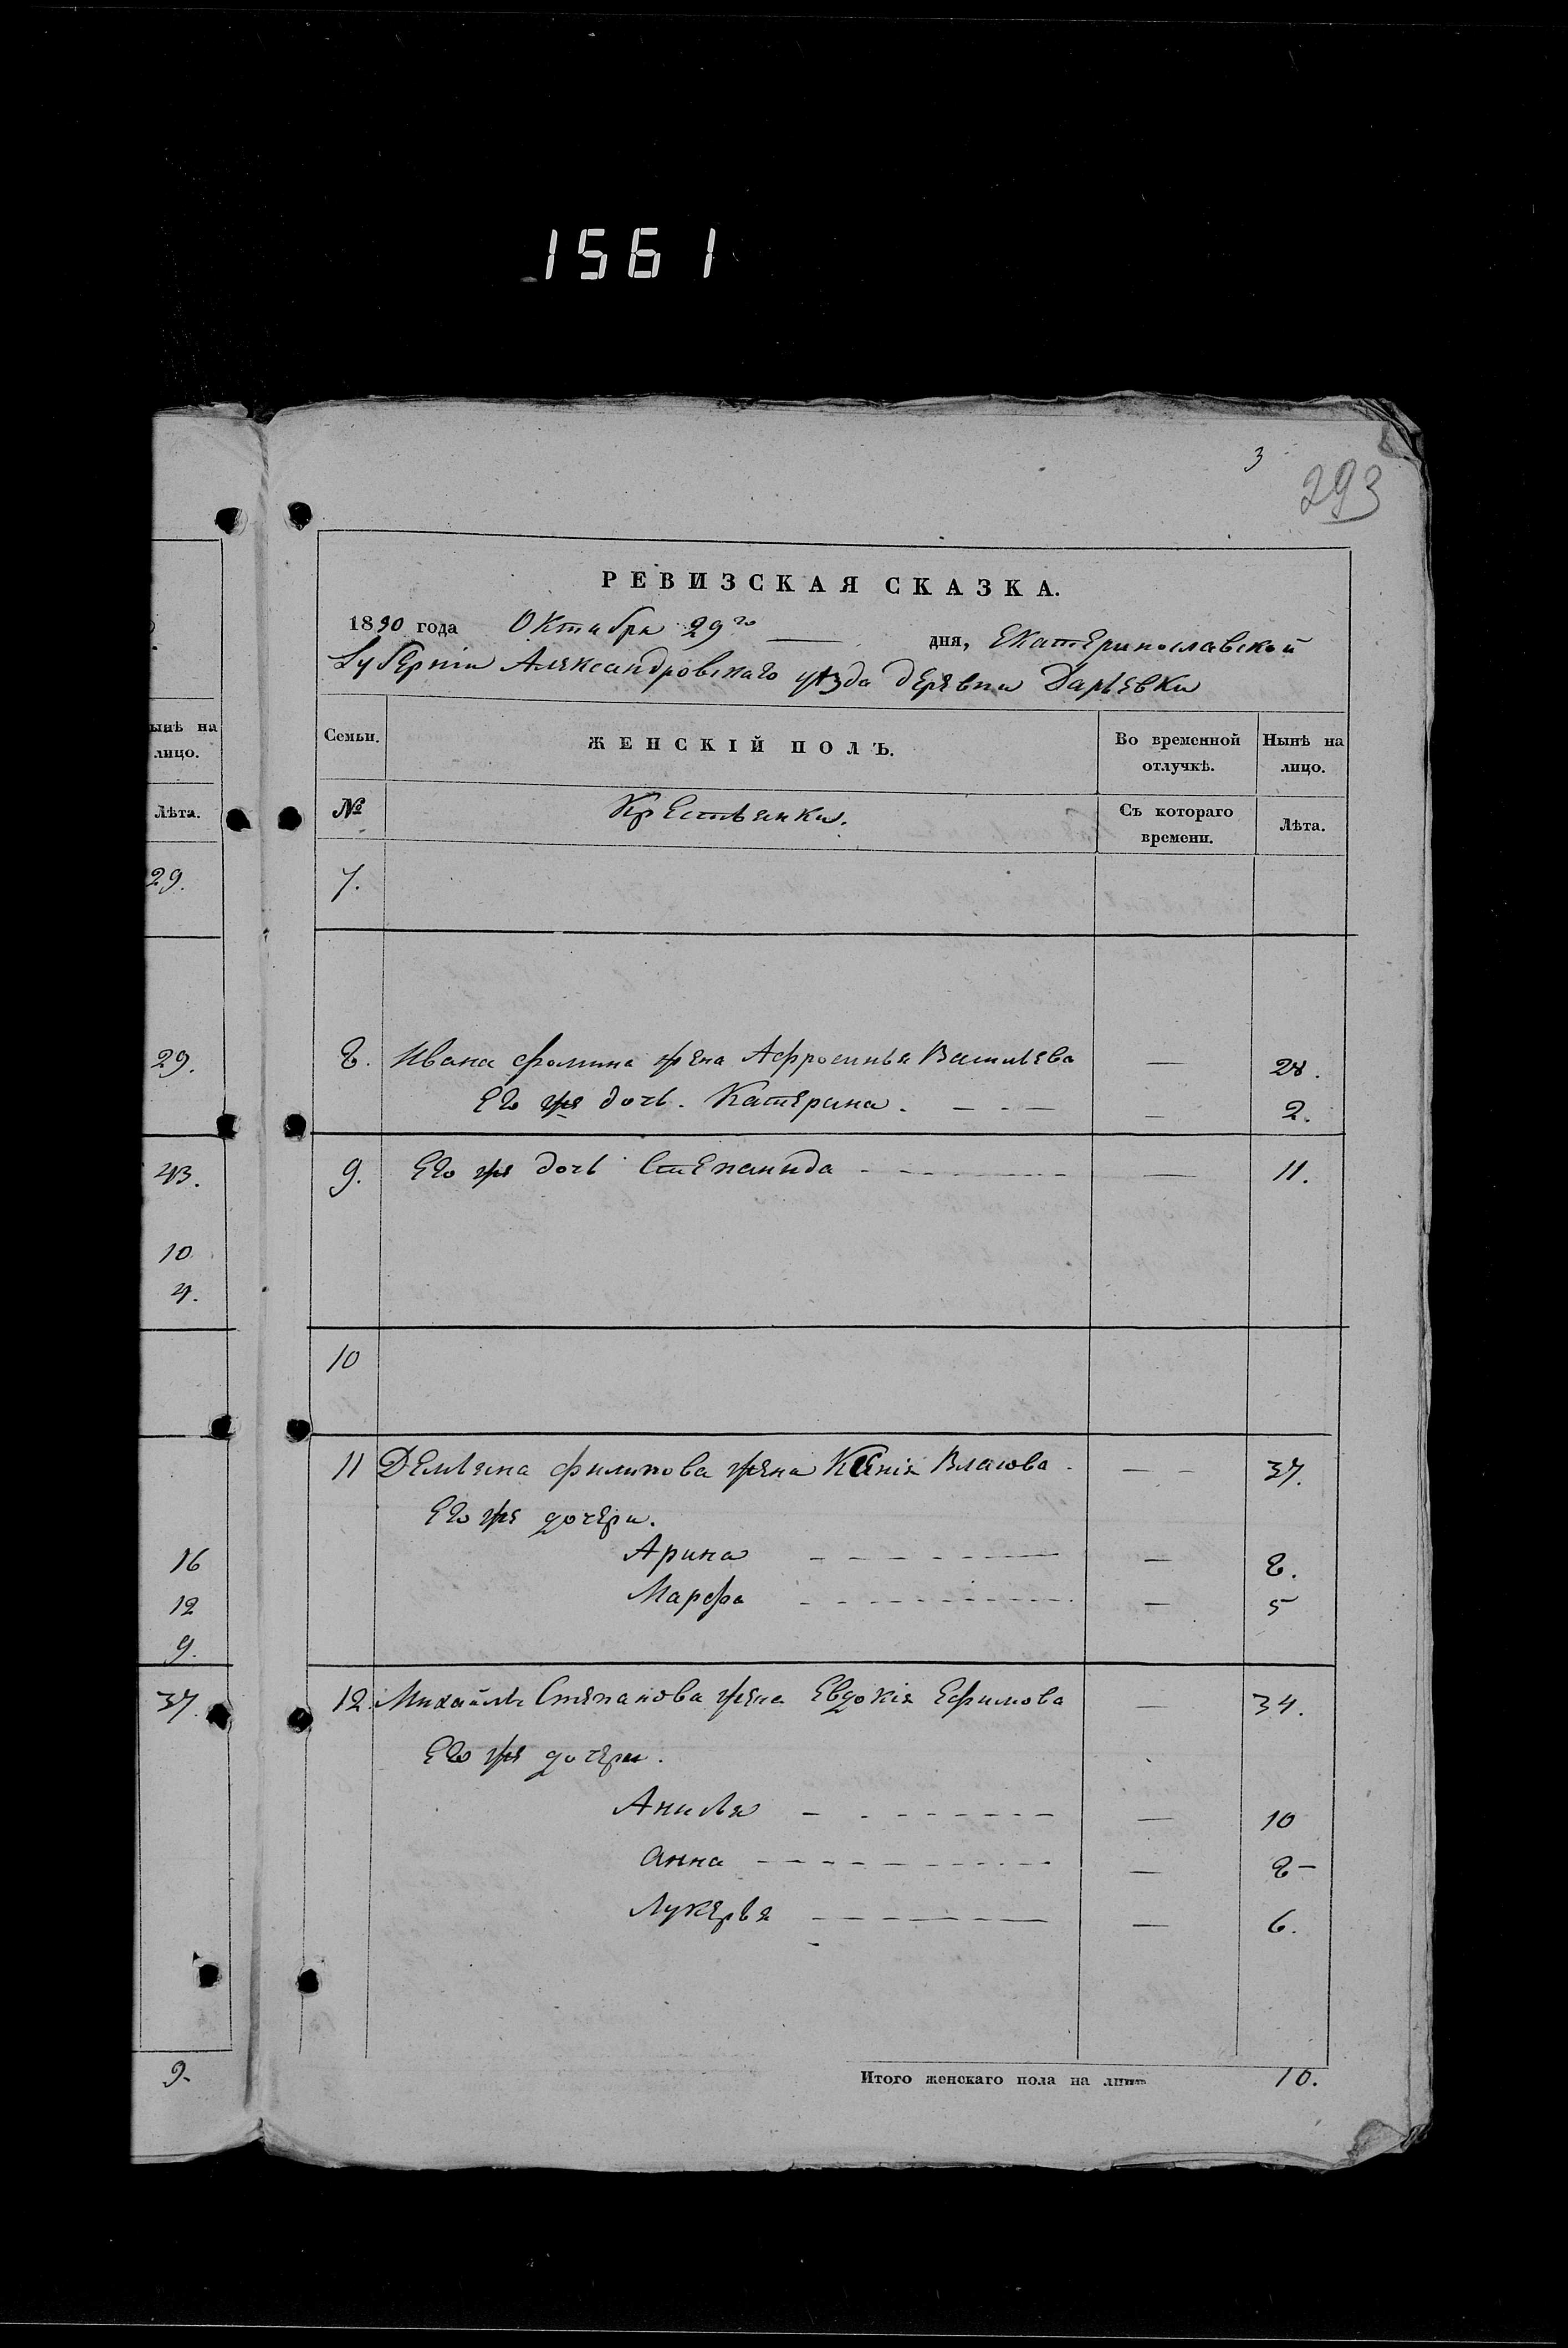 1561
3
293
РЕВИЗСКАЯ СКАЗКА.
1830 года Октября 29го дня, Екатеринославской
Губерніи Александровскаго уѣзда деревни Дарьевки
ынѣ на
лицо.
Лѣта.
29.
29.
43.
10
4.
16
12
9.
37.
9.
Семьи. ЖЕНСКІЙ ПОЛЪ. Во временной отлучкѣ. Нынѣ на лицо.
№ Крестьянки. Съ котораго времени. Лѣта.
7.
8. Ивана Фомина жена Афросинья Васильева — 28.
Его же дочь. Катерина. — 2.
9. Его же дочь Степанида — 11.
10
11 Демьяна Филипова жена Ксенія Власова — 37.
Его же дочери.
Арина — 8.
Марфа — 5
12. Михайлы Степанова жена Евдокія Ефимова — 34.
Его же дочери.
Анна — 8
Лукерья — 6.
Итого женскаго пола на лицо 10.